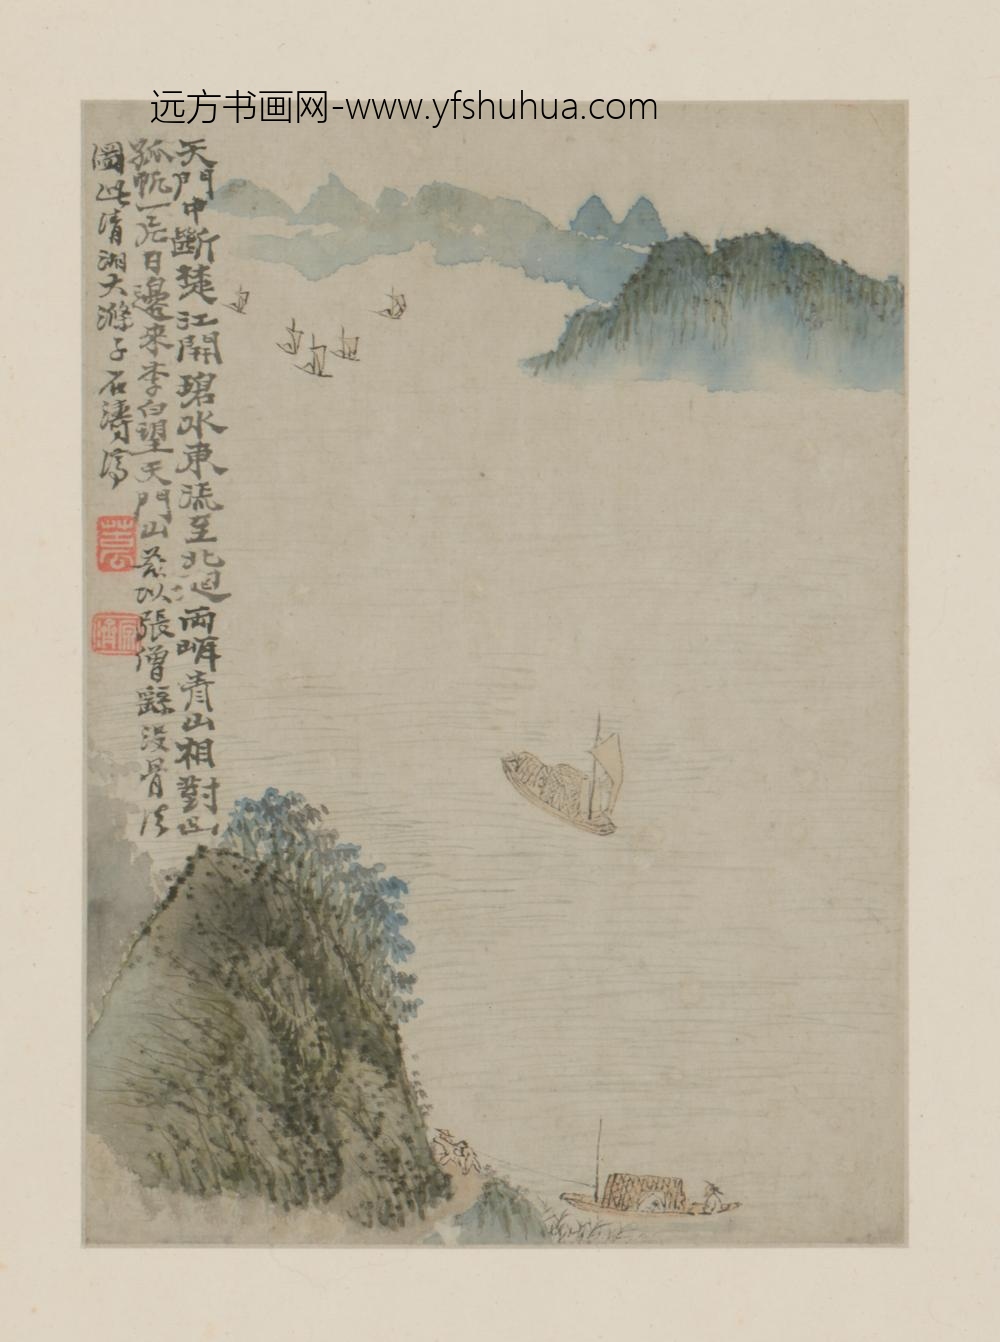 远方书画网-www.yfshuhua.com
天門中斷楚江開碧水東流至北迴兩岸青山相對出
孤帆一片日邊來李白望天門山茲以張僧繇沒骨法
圖此清湘大滌子石濤
苦瓜
原濟